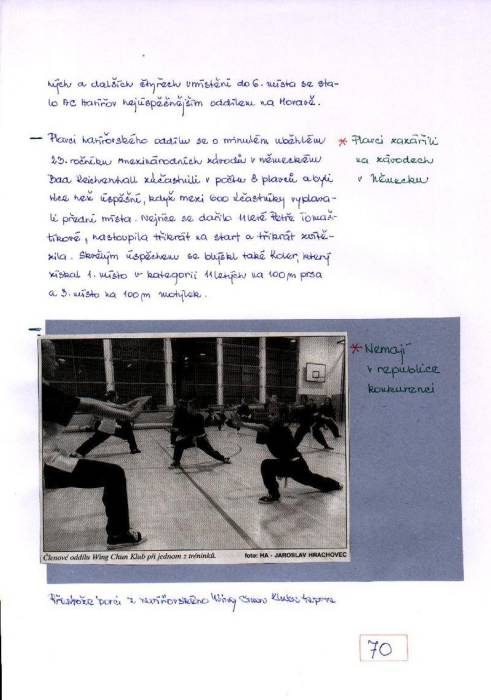 ných a dalších čtyřech umístění do 6. místa se sta-
lo AC Havířov nejúspěčnějším oddílem na Moravě.
– Plavci havířovského oddílu se o minulém uběhlém
23. ročníku mezinárodních závodů v německém
Bad Reichenhall zúčastnili v počtu 8 plavců a byli
více než úspěšní, když mezi 600 účastníky vyplava-
li přední místa. Nejvíce se dařilo 11 leté Petře Tomaš-
tíkové, nastoupila třikrát na start a třikrát zvítě-
zila. Skvělým úspěchem se blýskl také Koler, který
získal 1. místo v kategorii 11letých na 100 m prsa
a 3. místo na 100 m motýlek.
* Plavci zazářili
na závodech
v Německu
* Nemají
v republice
konkurenci
Členové oddílu Wing Chun Klub při jednom z tréninků. foto: HA - JAROSLAV HRACHOVEC
Přestože borci z havířovského Wing Chun Klubu teprve
70